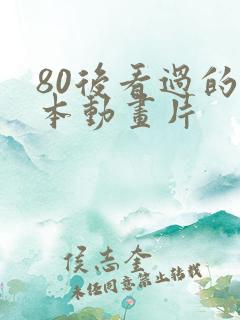 80後看過的
本動畫片
侯志奎
未經同意禁止轉載